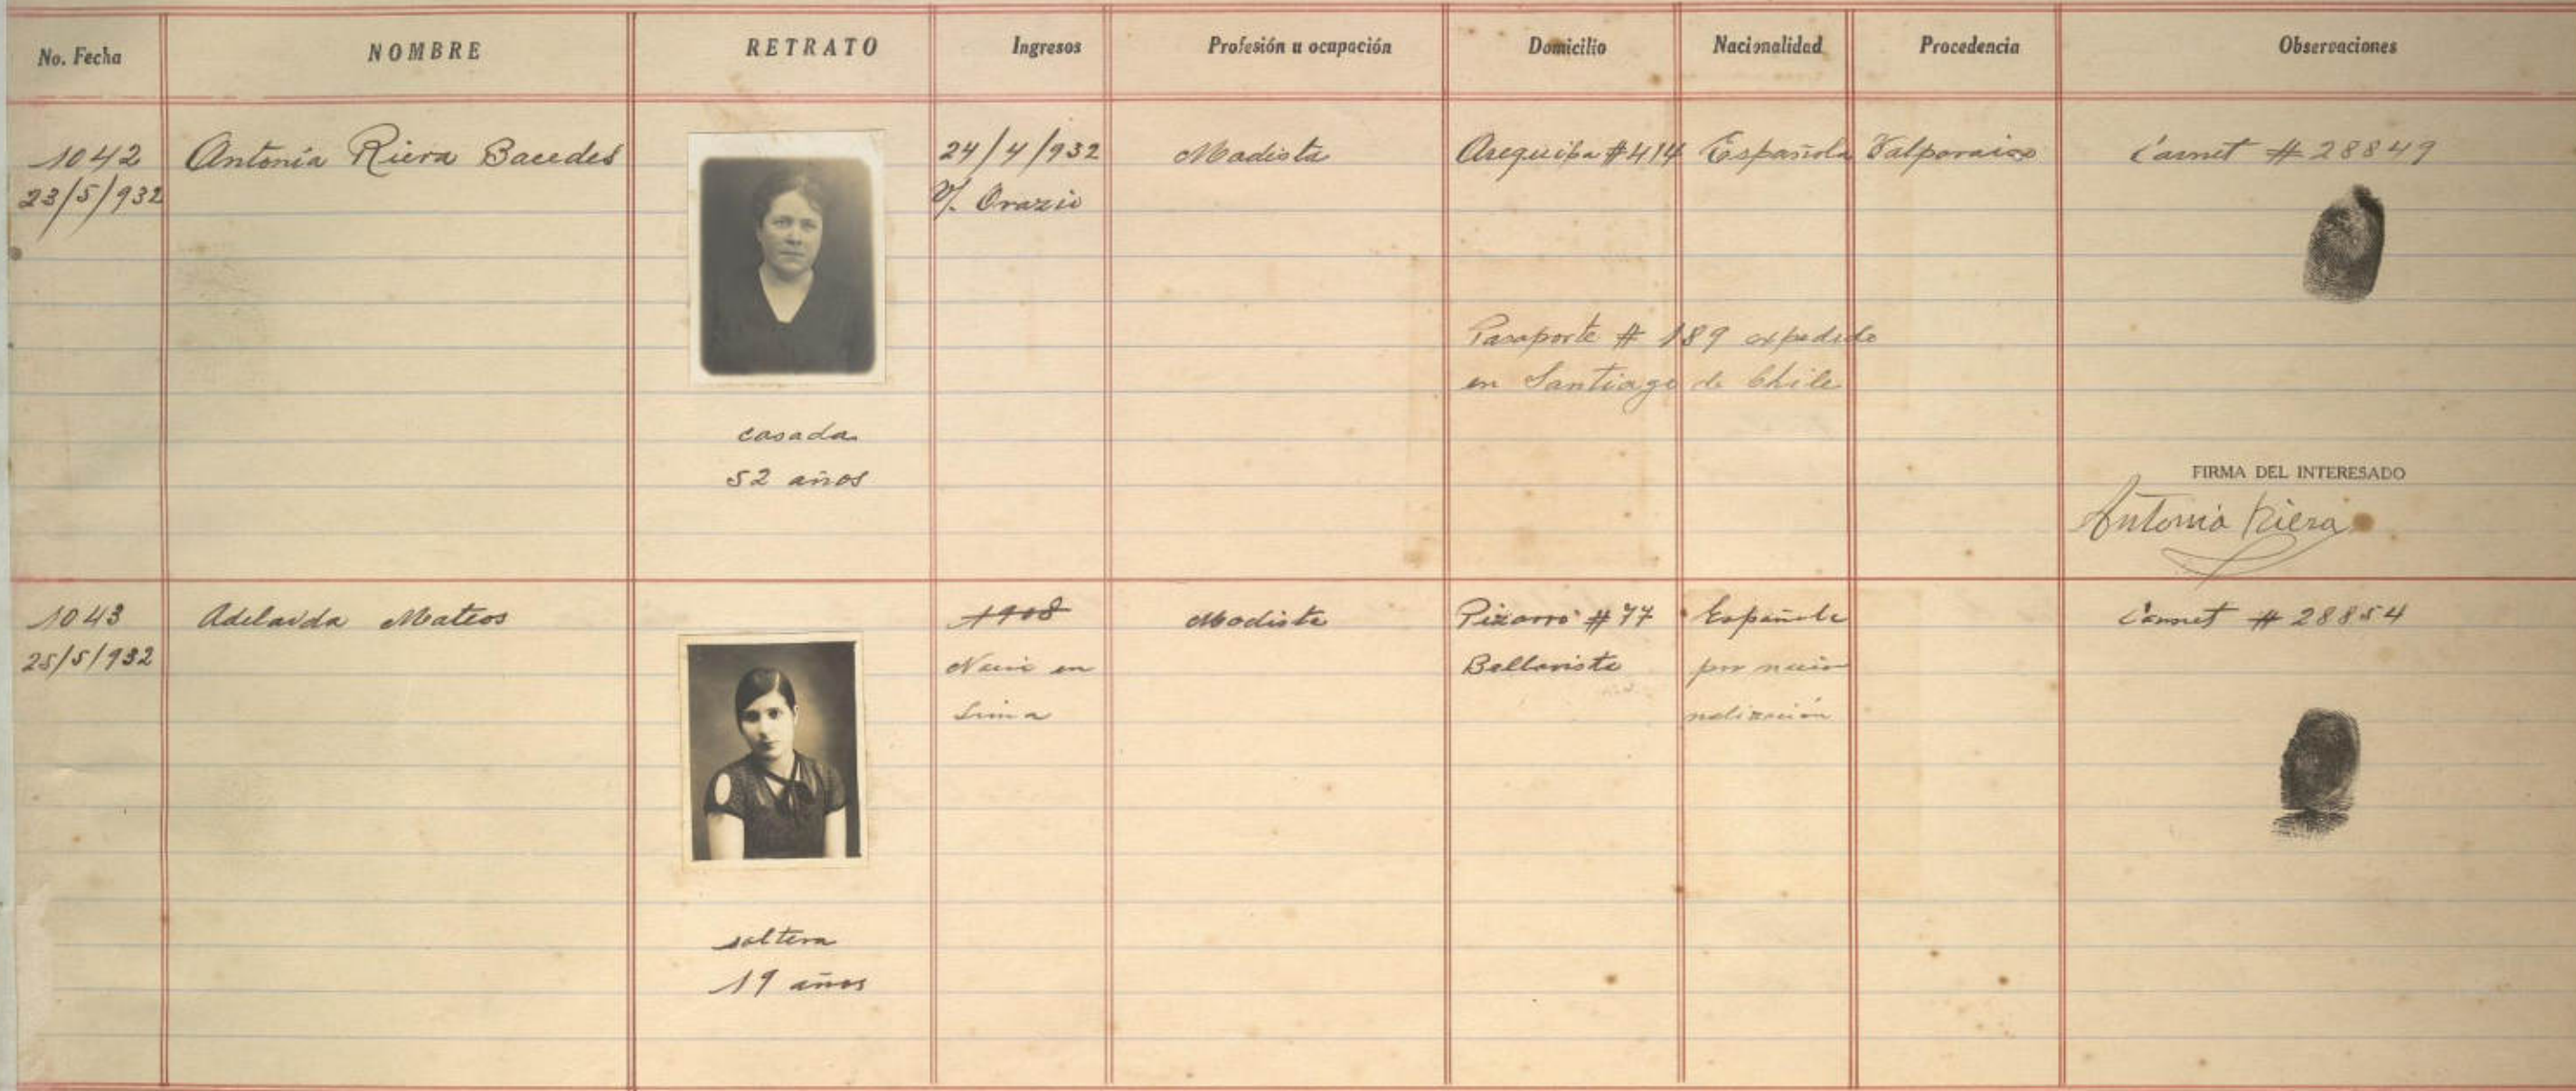 No. Fecha
NOMBRE
RETRATO
Ingresos
Profesión u ocupación
Domicilio
Nacionalidad
Procedencia
Observaciones
1042
23/5/932
Antonia Riera
casada
52 años
24/4/932
V/. Orazio
Modista
Arequipa #414
Española
Valparaiso
Carnet # 28849
Pasaporte # 189 expedido
en Santiago de Chile
FIRMA DEL INTERESADO
Antonia Riera
1043
25/5/932
Adelaida Mateos
soltera
19 años
1908
en
Lima
Modista
Pizarro #77
Bellavista
Española
por nacio
nalización
Carnet # 28854